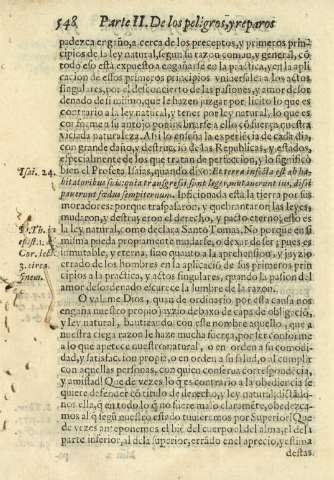 548 Parte II. De los peligros, y reparos
padezca engaño, acerca de los preceptos, y primeros prin-
cipios de la ley natural, segun su razon comun, y general, cō
todo eso està expuesto a engañarse en la practica, y en la apli
cacion de essos primeros principios vniversales a los actos
singulares, por el desconcierto de las pasiones, y amor desor
denado de si mismo, que le hazen juzgar por licito lo que es
contrario a la ley natural, y tener por ley natural, lo que es
conforme a su antojo
viciada naturaleza. Asi lo enseña la experiēcia de cada dia,
con grande daño, y destruciō de las Republicas, y estados,
especialmente de los que tratan de perfeccion, y lo significò
Isai. 24. bien el Profeta Isaias, quando dixo: Et terra infecta est ab ha-
bitatoribus suis: quia transgressi sunt leges, mutauerunt ius, disi
pauerunt fœdus sempiternum. Inficionada està la tierra por sus
moradores: porque traspasaron, y quebrantaron las leyes,
mudaron, y destruyeron el derecho, y pacto eterno, esto es
D. Th. la ley natural, como declara Santo Tomas, No porque en si
misma pueda propiamente mudarse, o dexar de ser; pues es
Cor. lect. inmutable, y eterna, sino quanto a la aprehension, y juyzio
3. circa errado de los hombres en la aplicaciō de sus primeros prin
finem. cipios a la practica, y actos singulares, quando la pasion del
amor desordenado escurece la lumbre de la razon.
O valame Dios, quan de ordinario por esta causa nos
engaña nuestro propio juyzio debaxo de capa de obligaciō,
y ley natural, bautizando con este nombre aquello, que a
nuestra ciega razon le haze mucha fuerça, por ser conforme
a lo que apetece nuestro natural, o en orden a su comodi-
dad, y satisfacion propia, o en orden a su salud, o al cumplir
con aquellas personas, con quien conserva correspondencia,
y amistad! Que de vezes lo q̄ es contrario a la obediēcia se
quiere defender cō titulo de derecho, y ley natural;
nos ella, q̄ en todo lo q̄ no fuere malo claramēte, obedezca-
mos al q̄ segū nuestro estado tuuieremos por Superior! Que
de vezes anteponemos el biē del cuerpo al del alma, el de la
parte inferior, al de la superior, errādo en el aprecio, y estima
destas